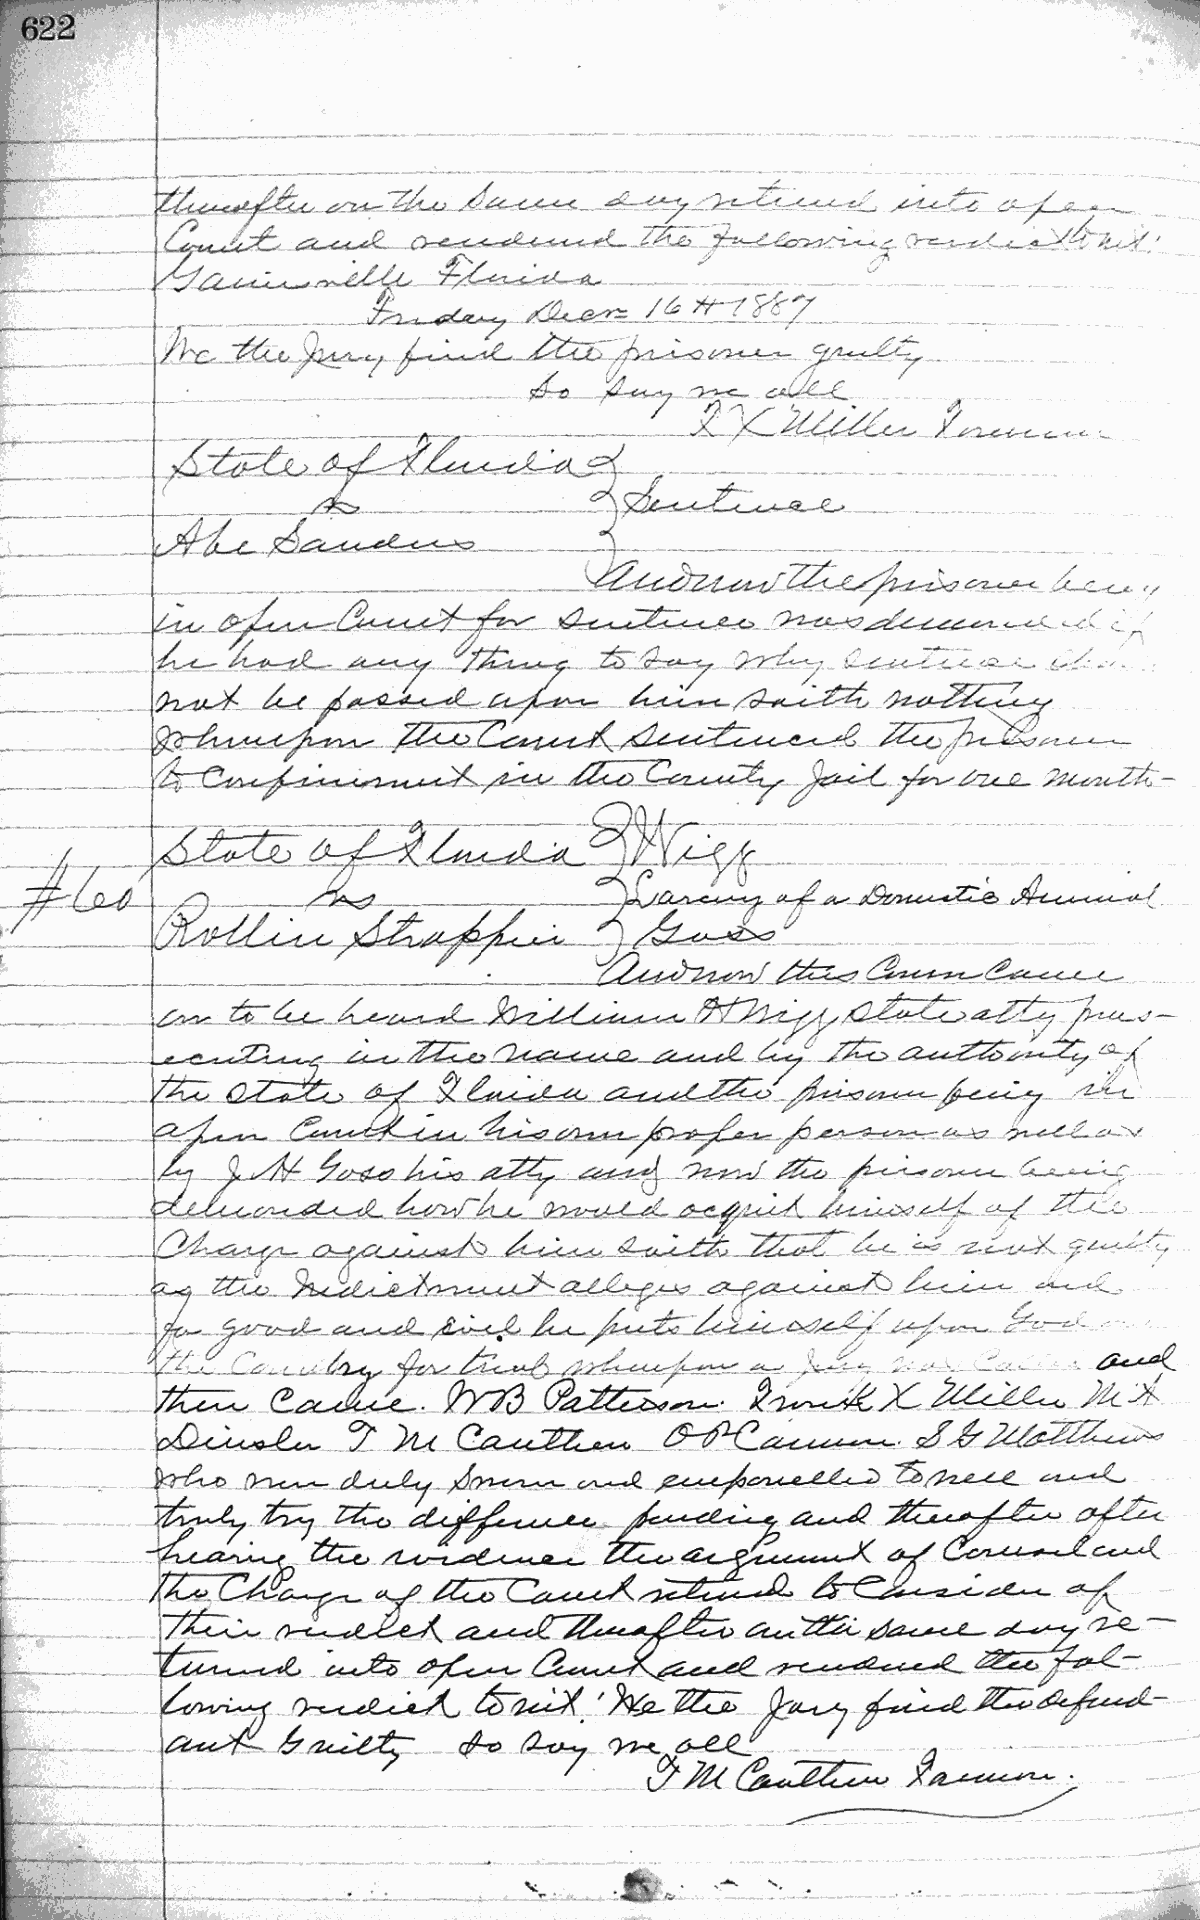 622
thereafter on the same day returned into open
Court and rendered the following verdict to wit:
Gainesville Florida
Friday Decr 16th 1887
We the Jury find the prisoner guilty
So say we all
F X Miller Foreman
State of Florida
vs } Sentence
Abe Sanders
And now the prisoner being
in open Court for sentence was demanded if
he had any thing to say why sentence
not be passed upon him saith nothing
Whereupon the Court sentenced the prisoner
to confinement in the County Jail for one month-
State of Florida } Wigg
#60 vs } Larceny of a Domestic Animal
Rollin Strappin } Goss
And now this Cause came
on to be heard William H Wigg State atty pros-
ecuting in the name and by the authority of
the State of Florida and the prisoner being in
open Court in his own proper person as well as
by J H Goss his atty and now the prisoner being
demanded how he would acquit himself of the
Charge against him saith that he is not guilty
as the Indictment alleges against him and
for good and evil he puts himself upon God
the Country for trial whereupon a Jury was Called and
then came. W B Patterson. Frank X Miller M A
Dinsler T M Cauthen O P Cannon. S G Matthews
who were duly sworn and empanelled to well and
truly try the difference pending and thereafter after
hearing the evidence the argument of Counsel and
the Charge of the Court retired to Consider of
their verdict and thereafter on the same day re-
turned into open Court and rendered the fol-
lowing verdict to wit! We the Jury find the defend-
ant Guilty so say we all
T M Cauthen Foreman.